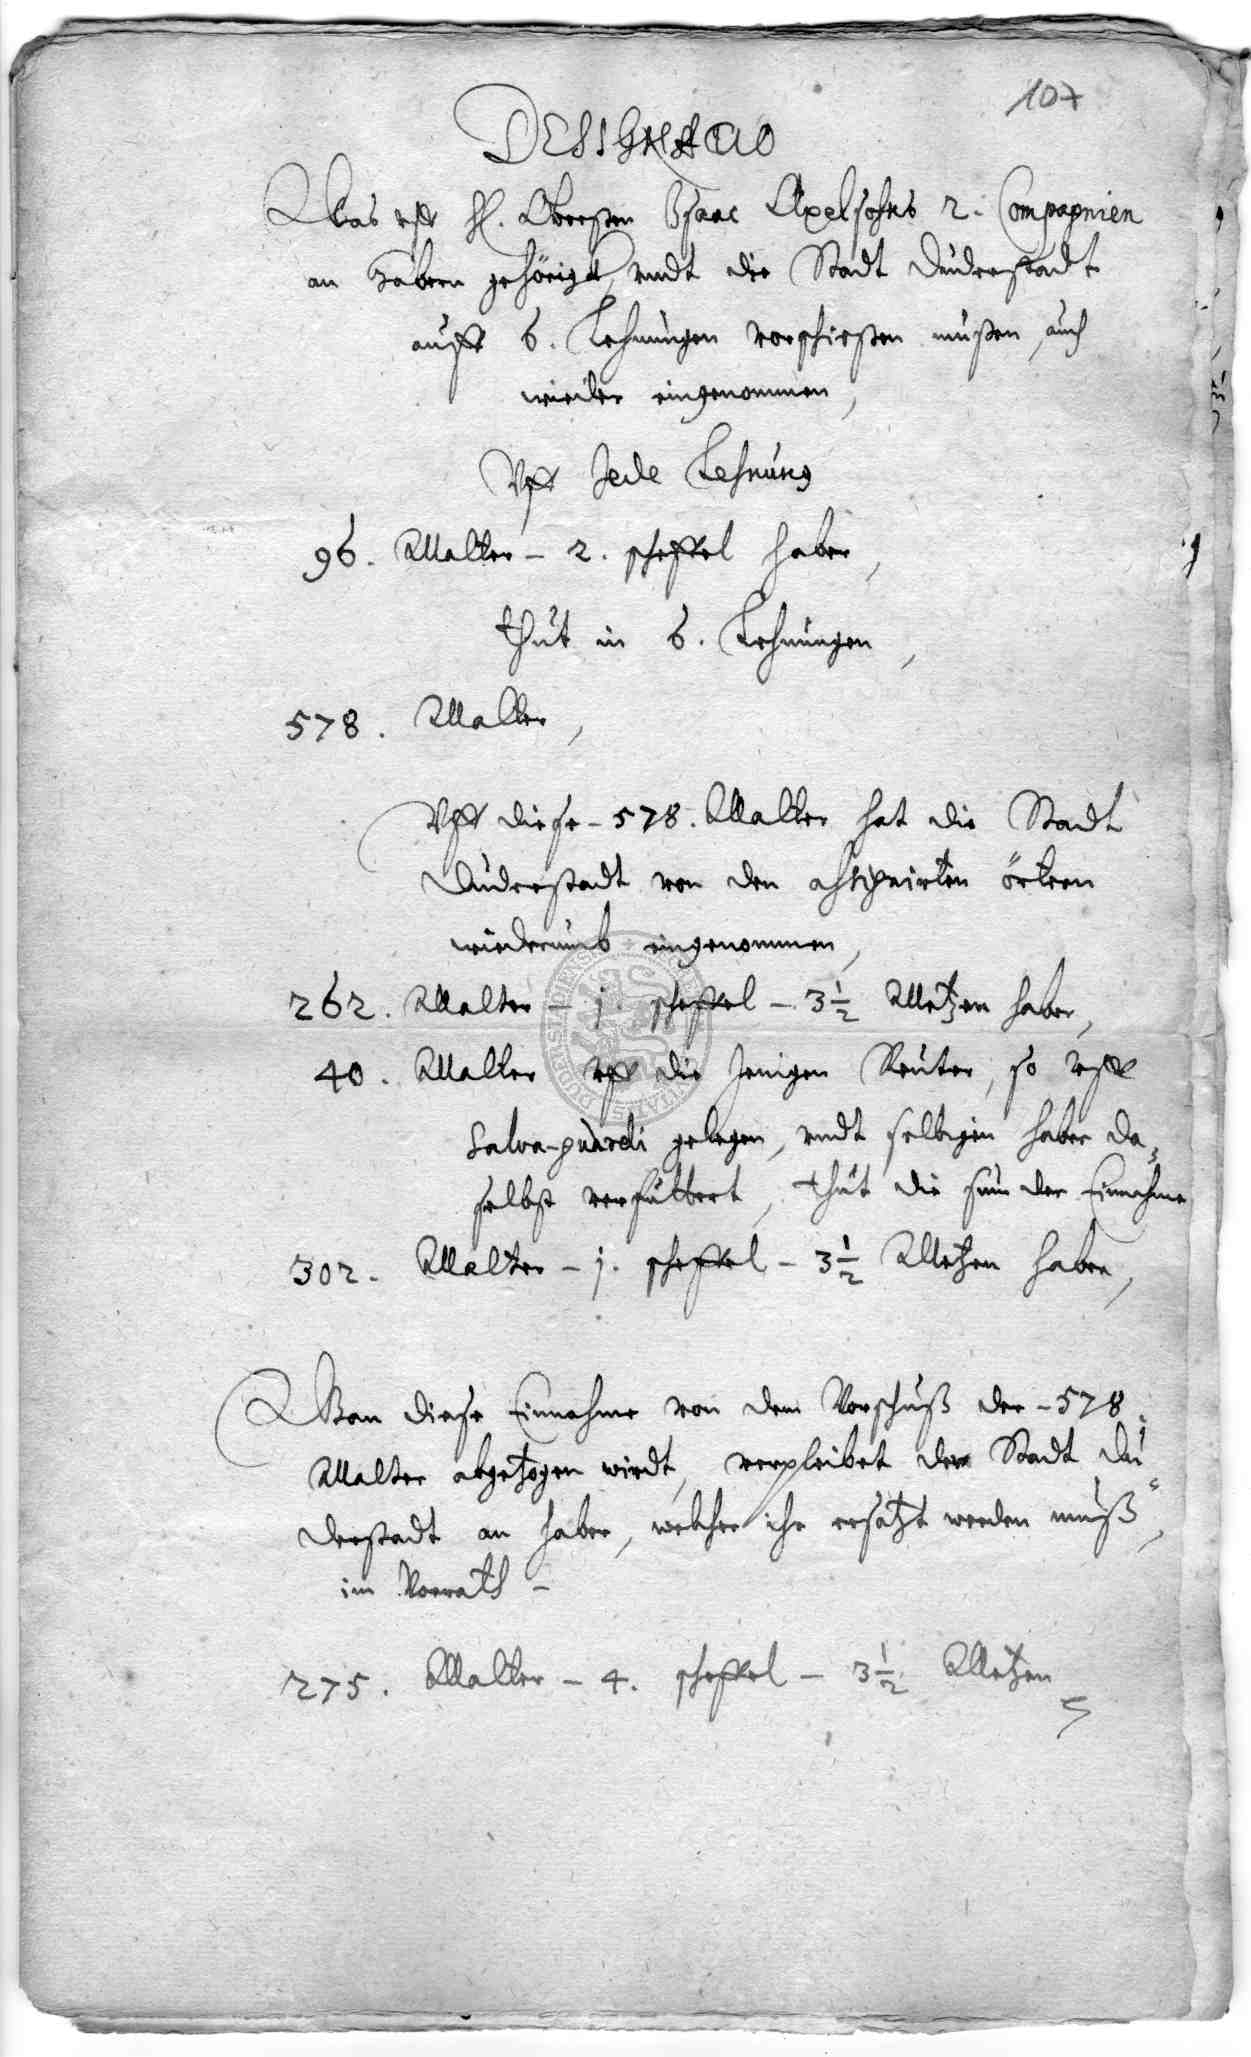 107
DESIGNATIO
Was vff H. Obersten Isaac Axelsohns 2. Compagnien
an Habern gehörigt, vndt die Stadt Duderstadt
auff 6. Lehnungen vorschießen müßen, auch
wieder eingenommen,
Vff Jede Lehnung
96. Malter – 2. scheffel haber,
thut in 6. Lehnungen,
578. Malter,
Vff diese – 578. Malter hat die Stadt
Duderstadt von den assignirten örtern
wiederumb eingenommen,
262. Malter – j. scheffel – 3½ Metzen haber,
40. Malter vff die Jenigen Reuter, so vff
Salva-guardi gelegen, vndt selbigen haber da-
selbst verfüttert, thut die sum der Einnahme
302. Malter – j. scheffel – 3½ Metzen haber,
Wan diese Einnahme von dem Vorschuß der – 578.
Malter abgezogen wirdt, verpleibet der Stadt Du-
derstadt an haber, welcher ihr ersatzt werden muß,
im Vorrath –
275. Malter – 4. scheffel – 3½ Metzen